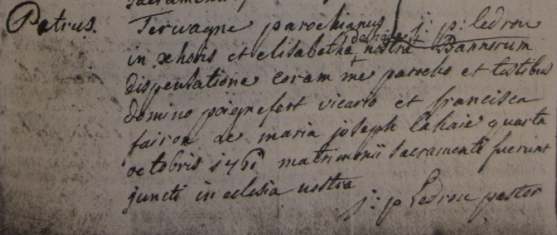 sacramenti
Petrus. Terwagne parochianus j: p: Ledrou
in xhoris et elisabetha nostra Bannorum
dispensatione coram me parocho et testibus
domino poignefert vicario et francisca
fairon ac maria joseph Lahaie quarta
octobris matrimonii sacramento fuerunt
juncti in eclesia nostra
j: p Ledrou pastor